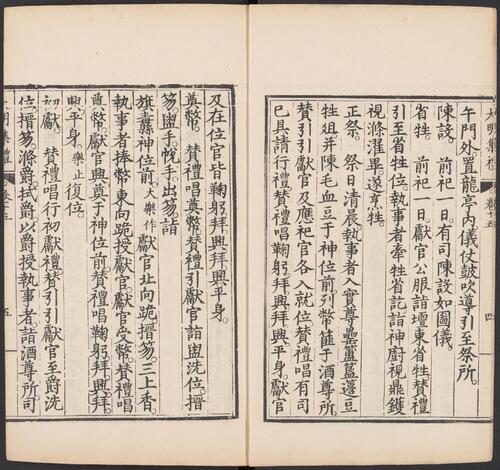 午門外置龍亭內儀仗皷吹導引至祭所。
陳設。　前祀一日。有司陳設如圖儀。
省牲。　前祀一日。獻官公服詣壇東省牲。贊禮
引至省牲位。執事者牽牲省訖詣神廚。視鼎鑊
視滌濯畢。遂烹牲。
正祭。　祭日清晨執事者入實尊罍簠簋籩豆
牲俎并陳毛血豆于神位前。列幣篚于酒尊所。
贊引引獻官及應祀官各入就位。贊禮唱有司
已具請行禮。贊禮唱鞠躬。拜興拜興平身。獻官
大明集禮　卷十五　四
及在位官皆鞠躬。拜興拜興平身。
奠幣。　贊禮唱奠幣。贊禮引獻官詣盥洗位。搢
笏。盥手。帨手。出笏。詣
旗纛神位前。大樂作　獻官北向跪。搢笏。三上香。
執事者捧幣東向跪授獻官。獻官受幣。贊禮唱
奠幣。獻官興奠于神位前。贊禮唱鞠躬。拜興拜
興平身。樂止復位。
初獻。　贊禮唱行初獻禮。贊引引獻官至爵洗
位。搢笏。滌爵。拭爵。以爵授執事者。詣酒尊所。司
大明集禮　卷十五　五